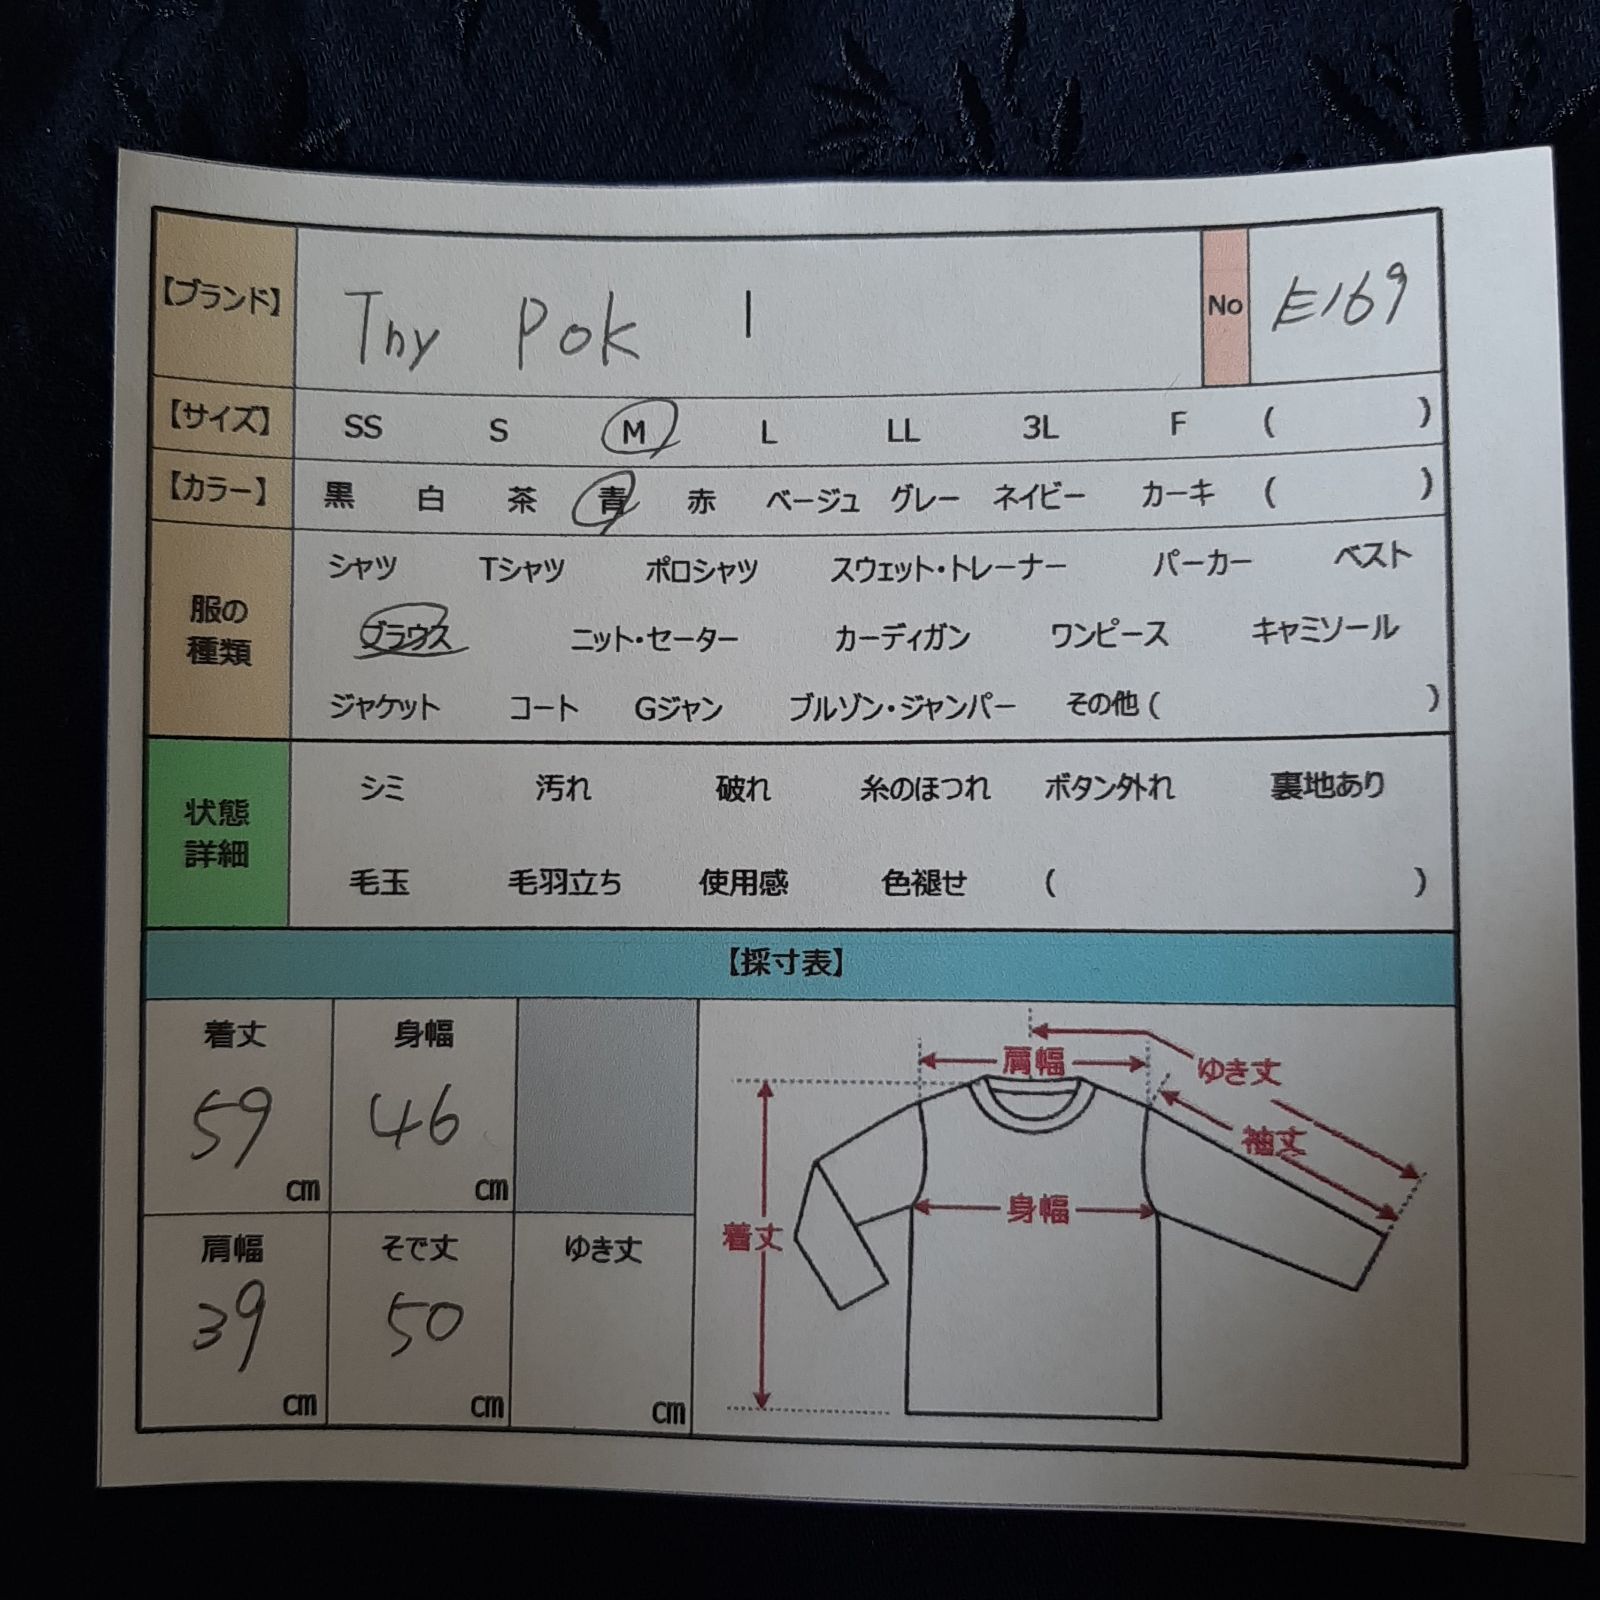 【ブランド】 Tny Pok I No E169
【サイズ】 SS S M L LL 3L F ( )
【カラー】 黒 白 茶 青 赤 ベージュ グレー ネイビー カーキ ( )
服の種類
シャツ Tシャツ ポロシャツ スウェット・トレーナー パーカー ベスト
ブラウス ニット・セーター カーディガン ワンピース キャミソール
ジャケット コート Gジャン ブルゾン・ジャンパー その他 ( )
状態詳細
シミ 汚れ 破れ 糸のほつれ ボタン外れ 裏地あり
毛玉 毛羽立ち 使用感 色褪せ ( )
【採寸表】
着丈 身幅
59 cm 46 cm
肩幅 そで丈 ゆき丈
39 cm 50 cm cm
肩幅 ゆき丈
袖丈
身幅
着丈